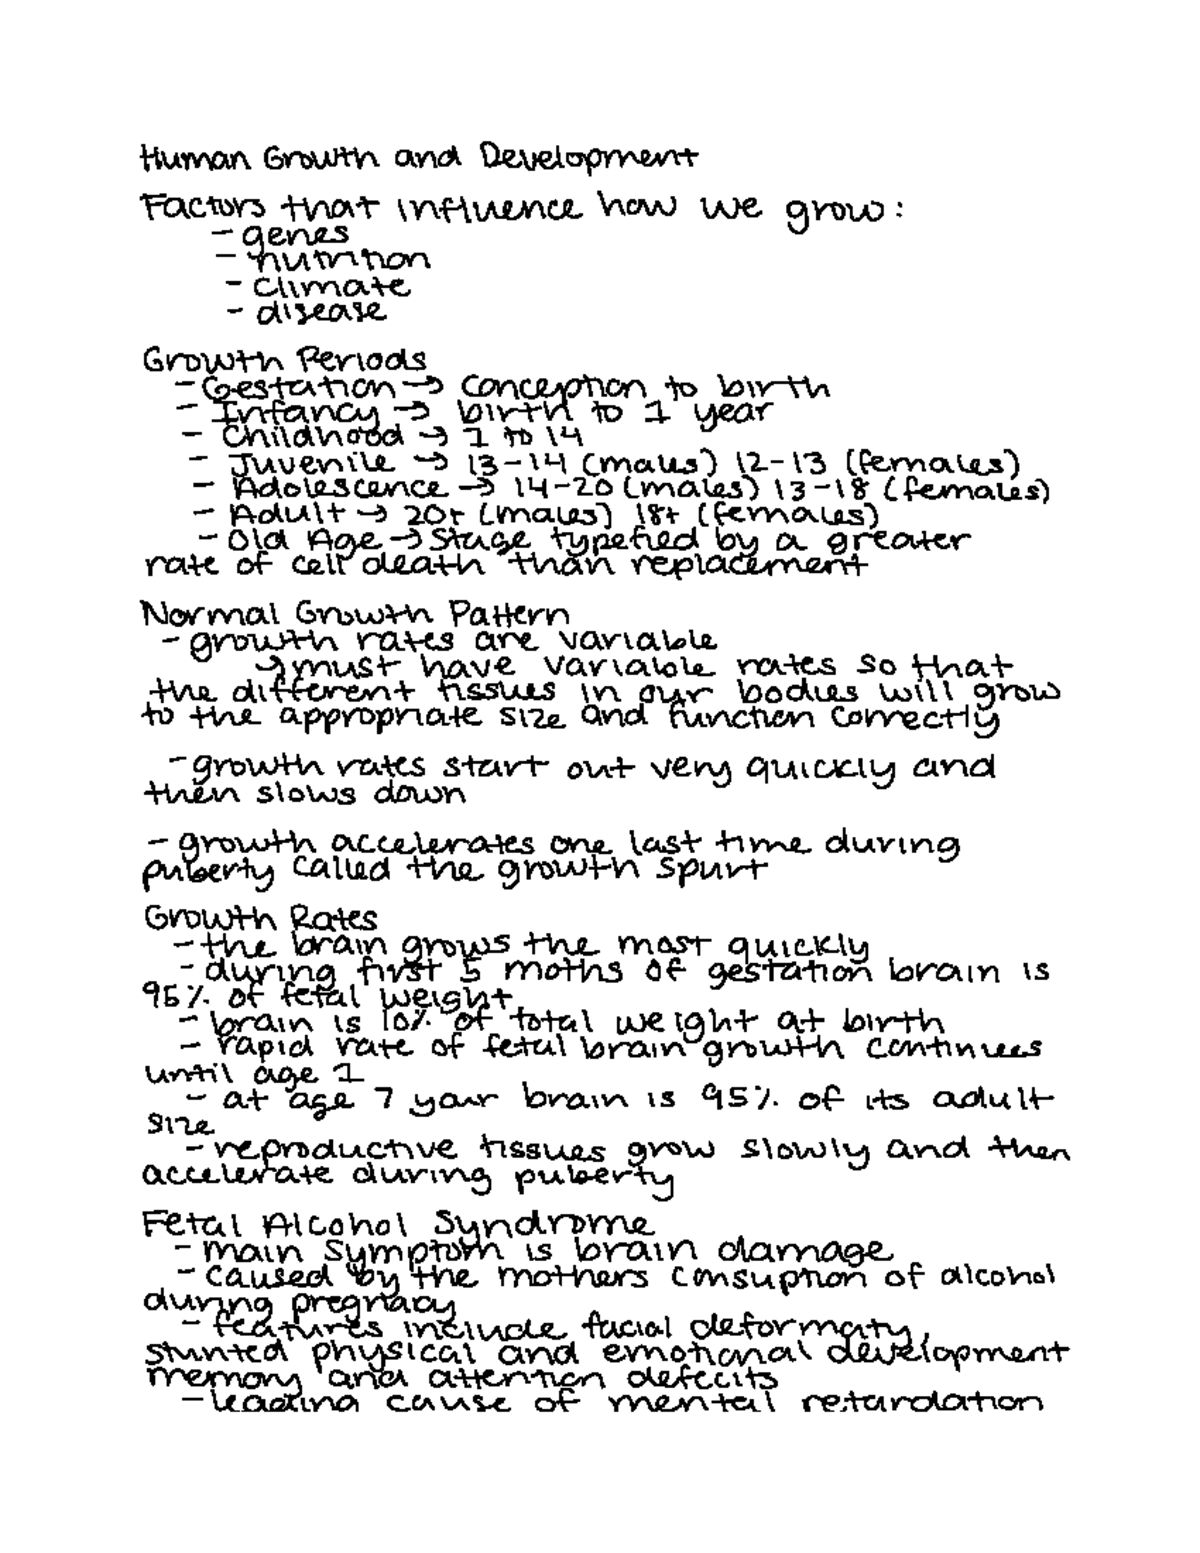 Human Growth and Development
Factors that influence how we grow:
- genes
- nutrition
- climate
- disease
Growth Periods
- Gestation → conception to birth
- Infancy → birth to 1 year
- Childhood → 1 to 14
- Juvenile → 13-14 (males) 12-13 (females)
- Adolescence → 14-20 (males) 13-18 (females)
- Adult → 20+ (males) 18+ (females)
- Old Age → Stage typefied by a greater
rate of cell death than replacement
Normal Growth Pattern
- growth rates are variable
↳ must have variable rates so that
the different tissues in our bodies will grow
to the appropriate size and function correctly
- growth rates start out very quickly and
then slows down
- growth accelerates one last time during
puberty called the growth spurt
Growth Rates
- the brain grows the most quickly
- during first 5 moths of gestation brain is
95% of fetal weight
- brain is 10% of total weight at birth
- rapid rate of fetal brain growth continues
until age 1
- at age 7 your brain is 95% of its adult
size
- reproductive tissues grow slowly and then
accelerate during puberty
Fetal Alcohol Syndrome
- main symptom is brain damage
- caused by the mothers consuption of alcohol
during pregnacy
- features include facial deformaty,
stunted physical and emotional development
memory and attention defecits
- leading cause of mental retardation